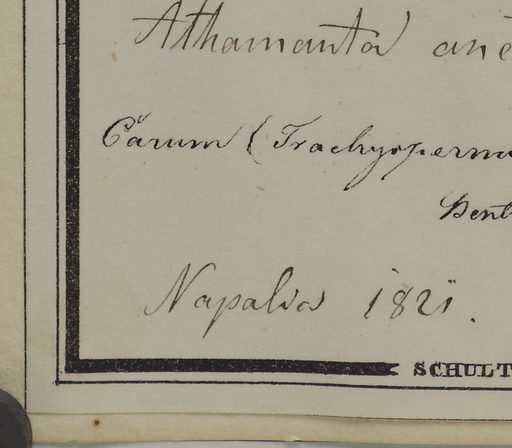 Athamanta ane
Carum (Trachysperm
Bent
Napalia 1821.
SCHULT